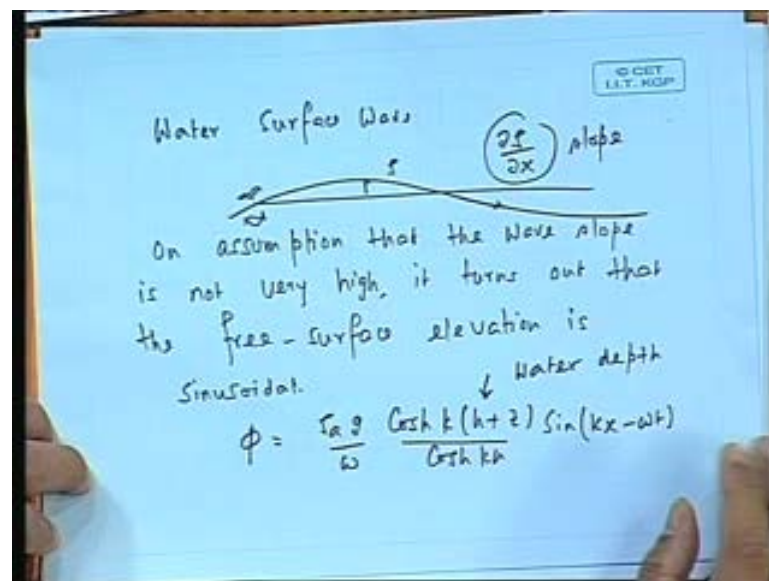 © CET
I.I.T. KGP
Water Surface Waves
ζ
∂ζ/∂x slope
On assumption that the wave slope
is not very high, it turns out that
the free-surface elevation is
Sinusoidal.
↓ water depth
φ = ζa g/ω Cosh k(h+z)/Cosh kh Sin(kx-ωt)